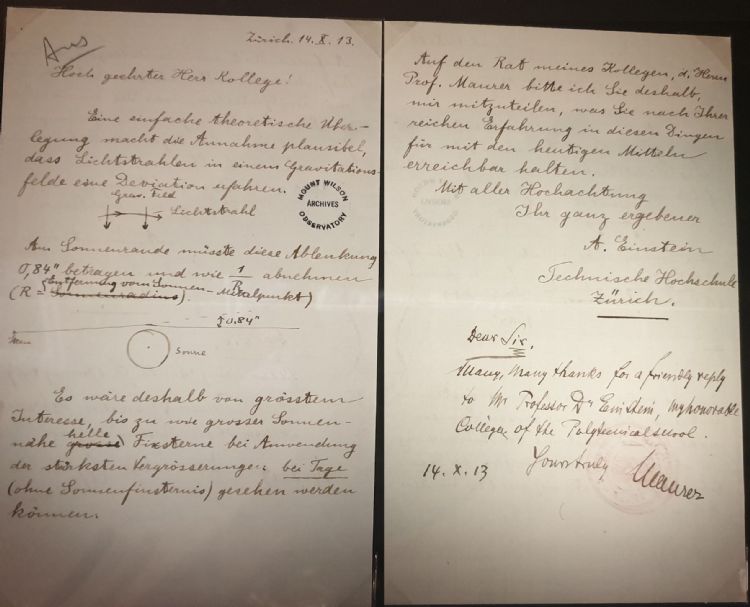 Zürich. 14. X. 13.
Hoch geehrter Herr Kollege!
Eine einfache theoretische Über-
legung macht die Annahme plausibel,
dass Lichtstrahlen in einem Gravitations-
felde eine Deviation erfahren.
Grav. Feld
Lichtstrahl
MOUNT WILSON
ARCHIVES
OBSERVATORY
Am Sonnenrande müsste diese Ablenkung
0,84" betragen und wie 1/R abnehmen
(R = Sonnenradius Entfernung vom Sonnen-Mittelpunkt).
0.84"
Sonne
Es wäre deshalb von grösstem
Interesse, bis zu wie grosser Sonnen-
nähe grosse helle Fixsterne bei Anwendung
der stärksten Vergrösserungen bei Tage
(ohne Sonnenfinsternis) gesehen werden
können.
Auf den Rat meines Kollegen, d. Herrn
Prof. Maurer bitte ich Sie deshalb,
mir mitzuteilen, was Sie nach Ihrer
reichen Erfahrung in diesen Dingen
für mit den heutigen Mitteln
erreichbar halten.
Mit aller Hochachtung
Ihr ganz ergebener
A. Einstein
Technische Hochschule
Zürich.
Dear Sir,
Many, many thanks for a friendly reply
to Mr Professor Dr Einstein, my honorable
Collegue of the Polytechnical school.
14. X. 13 Yours truly Maurer